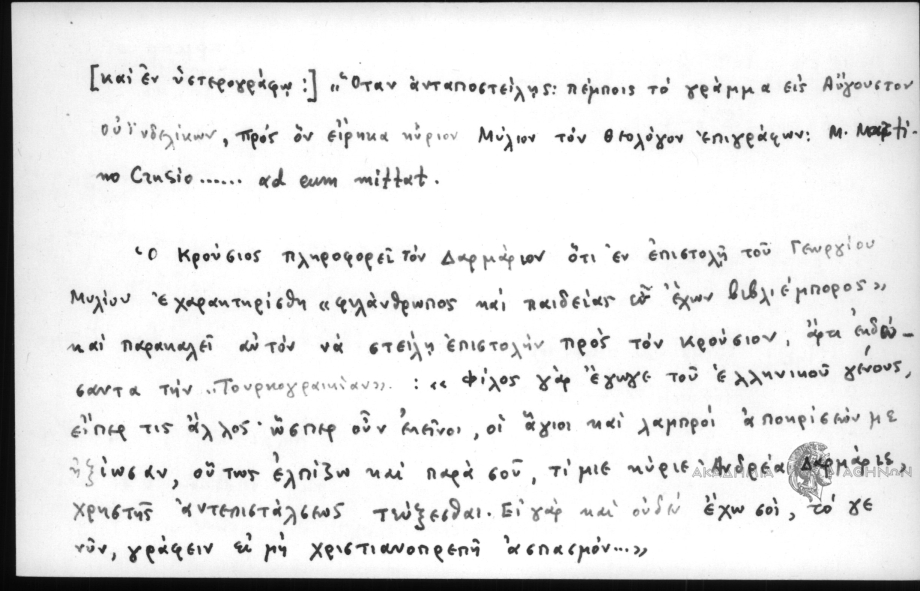 [καὶ ἐν ὑστερογράφῳ:] «Ὅταν ἀνταποστείλῃς: πέμποις τὸ γράμμα εἰς Αὔγουστον
Οὐϊνδελίκων, πρὸς ὃν εἴρηκα κύριον Μύλιον τὸν θεολόγον ἐπιγράφων: M. Marti-
no Crusio...... ad eum mittat.
Ὁ Κρούσιος πληροφορεῖ τὸν Δαρμάριον ὅτι ἐν ἐπιστολῇ τοῦ Γεωργίου
Μυλίου ἐχαρακτηρίσθη «φιλάνθρωπος καὶ παιδείας εὖ ἔχων βιβλιέμπορος»
καὶ παρακαλεῖ αὐτὸν νὰ στείλῃ ἐπιστολὴν πρὸς τὸν Κρούσιον, ἄρτι ἐκδώ-
σαντα τὴν «Τουρκογραικίαν». : «Φίλος γὰρ ἔγωγε τοῦ ἑλληνικοῦ γένους,
εἴπερ τις ἄλλος· ὥσπερ οὖν ἐκεῖνοι, οἱ ἅγιοι καὶ λαμπροὶ ἀποκρίσεών με
ἠξίωσαν, οὕτως ἐλπίζω καὶ παρὰ σοῦ, τίμιε κύριε Ἀνδρέα Δαρμάριε,
χρηστῆς ἀντεπιστάλσεως τεύξεσθαι. Εἰ γὰρ καὶ οὐδὲν ἔχω σοι, τό γε
νῦν, γράφειν εἰ μὴ χριστιανοπρεπῆ ἀσπασμόν...»
ΑΚΑΔΗΜΙΑ ΑΘΗΝΩΝ